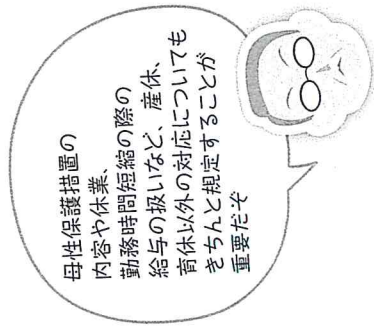 母性保護措置の
内容や休業、
勤務時間短縮の際の
給与の扱いなど、産休、
育休以外の対応についても
きちんと規定することが
重要だぞ